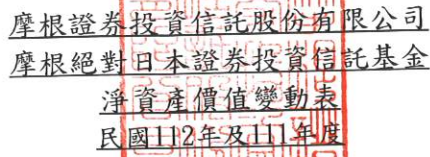 摩根證券投資信託股份有限公司
摩根絕對日本證券投資信託基金
淨資產價值變動表
民國112年及111年度